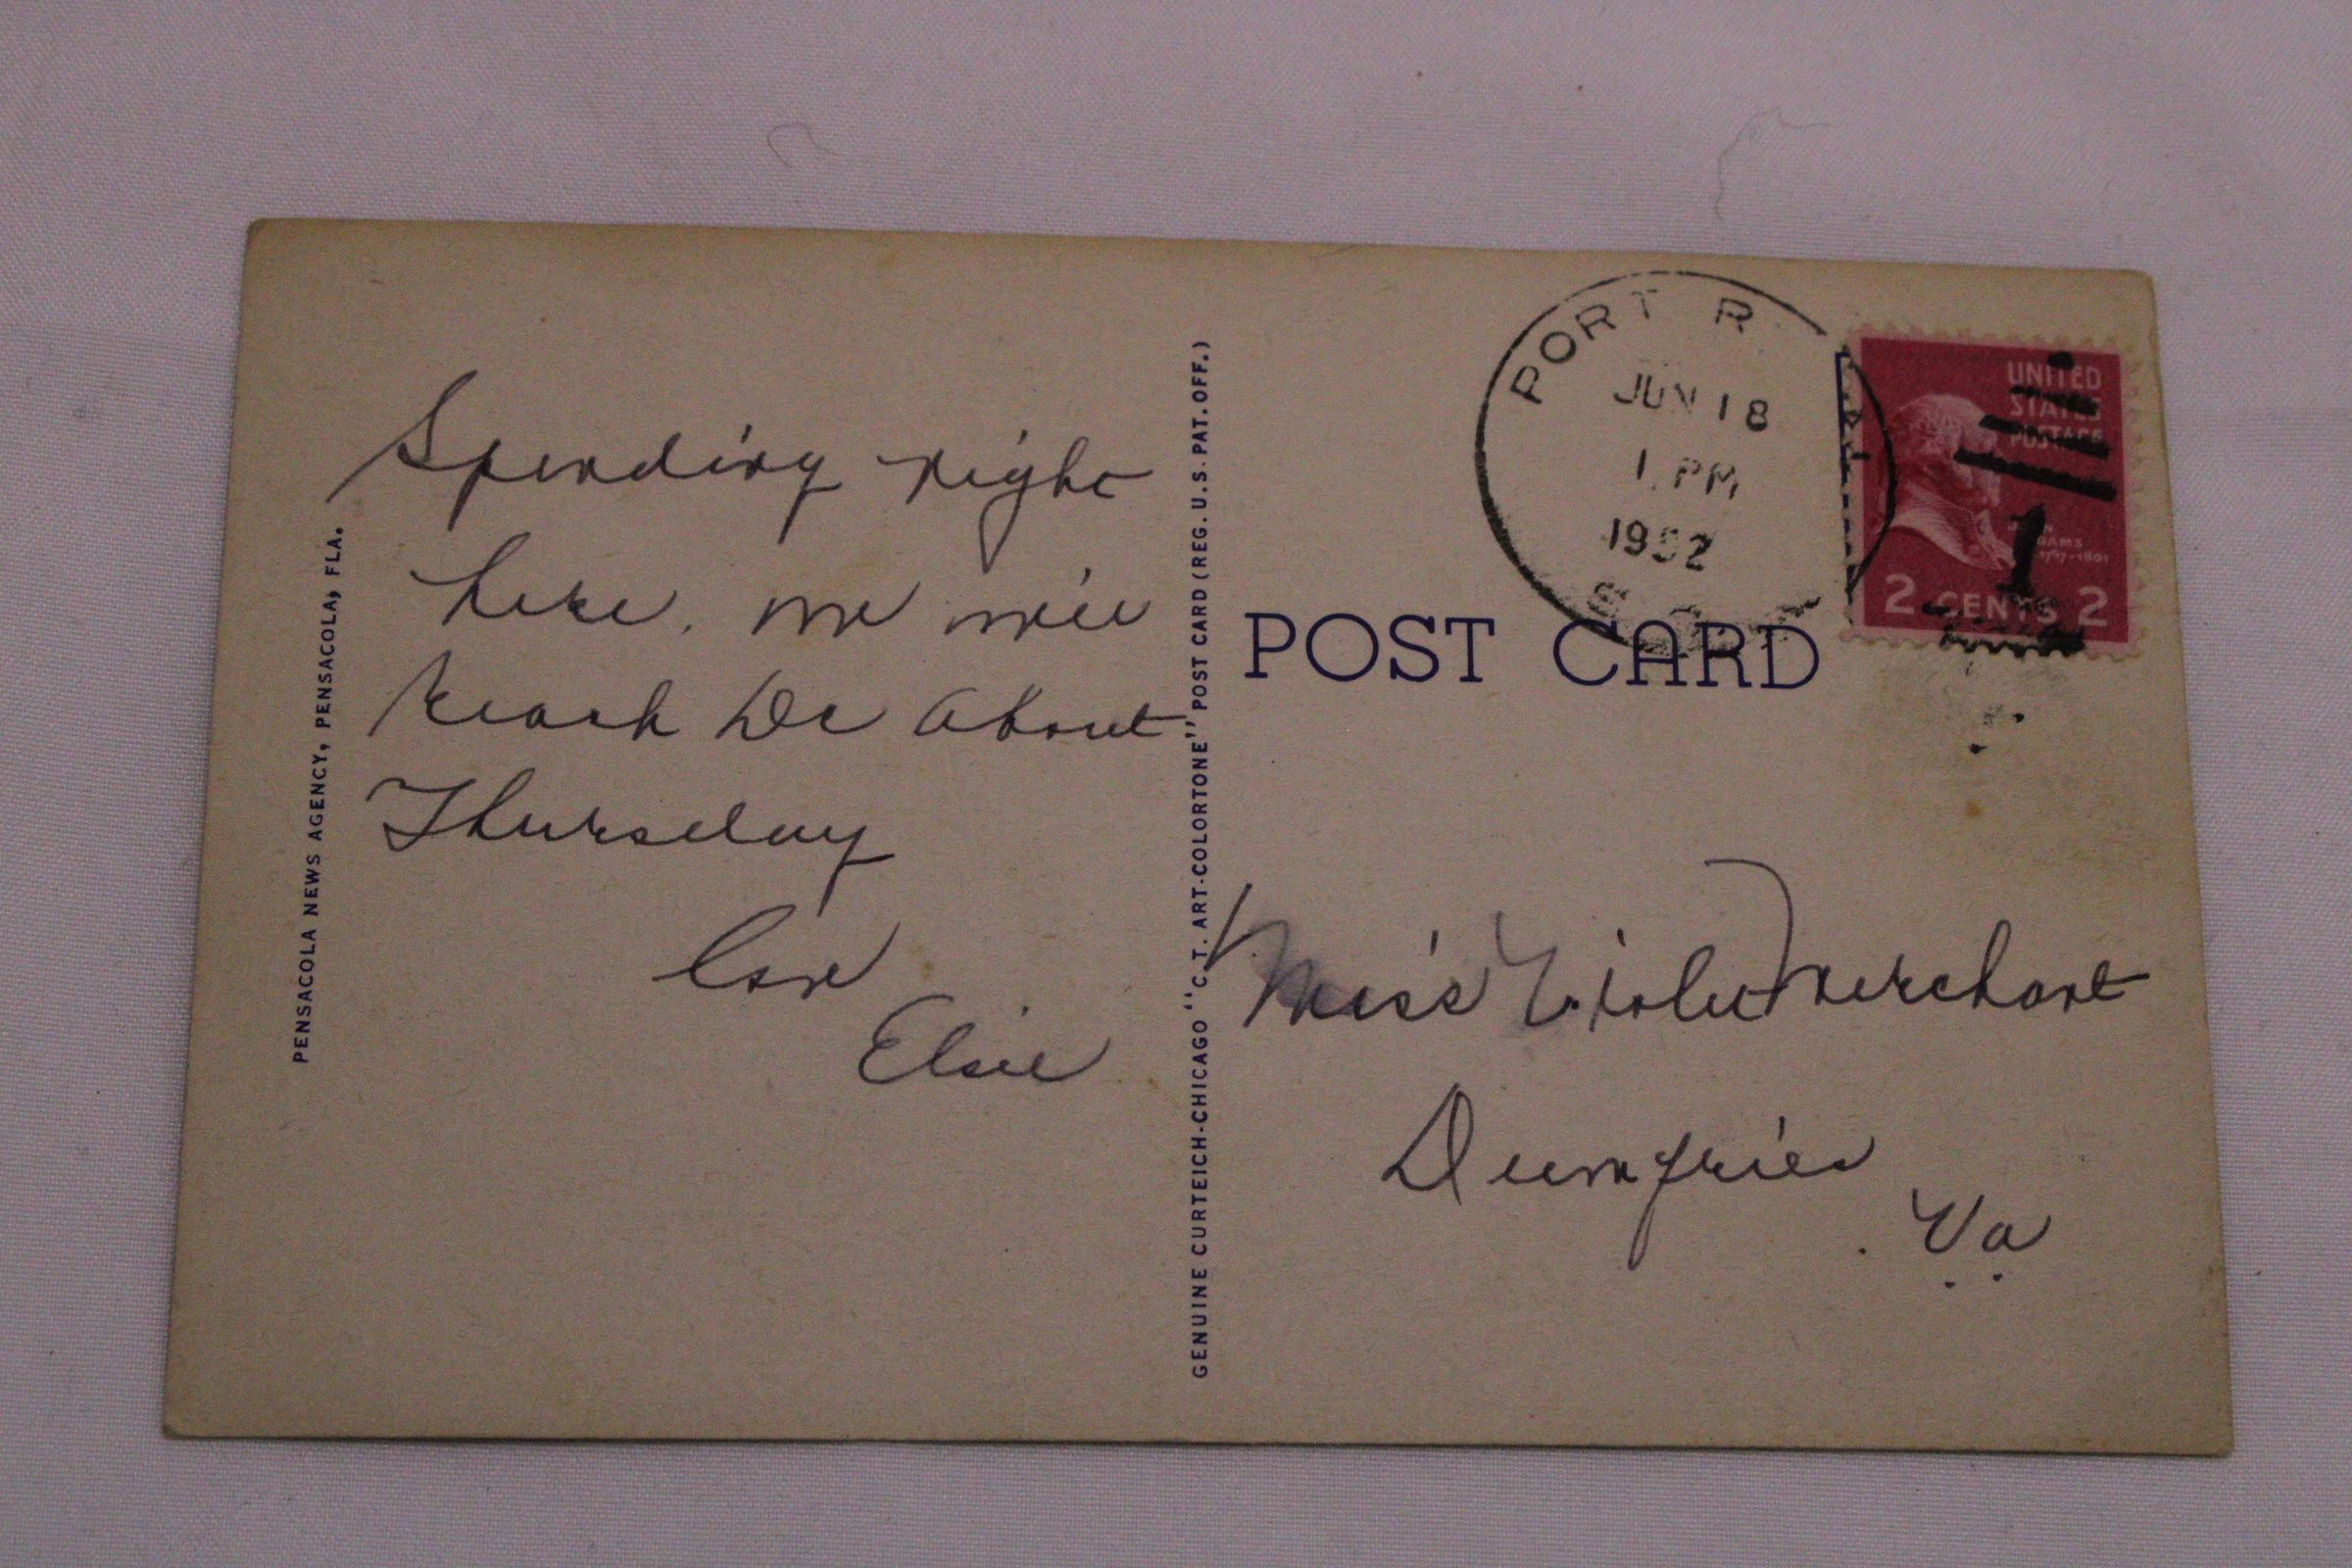 PENSACOLA NEWS AGENCY, PENSACOLA, FLA.
Spending night
here. we will
reach De about
Thursday
Love
Elsie
GENUINE CURTEICH-CHICAGO "C. T. ART-COLORTONE" POST CARD (REG. U.S. PAT. OFF.)
POST CARD
PORT R
JUN 18
1 PM
1952
UNITED
STATES
POSTAGE
ADAMS
1797-1801
2 CENTS 2
1
Miss Violet Merchant
Dumfries
Va